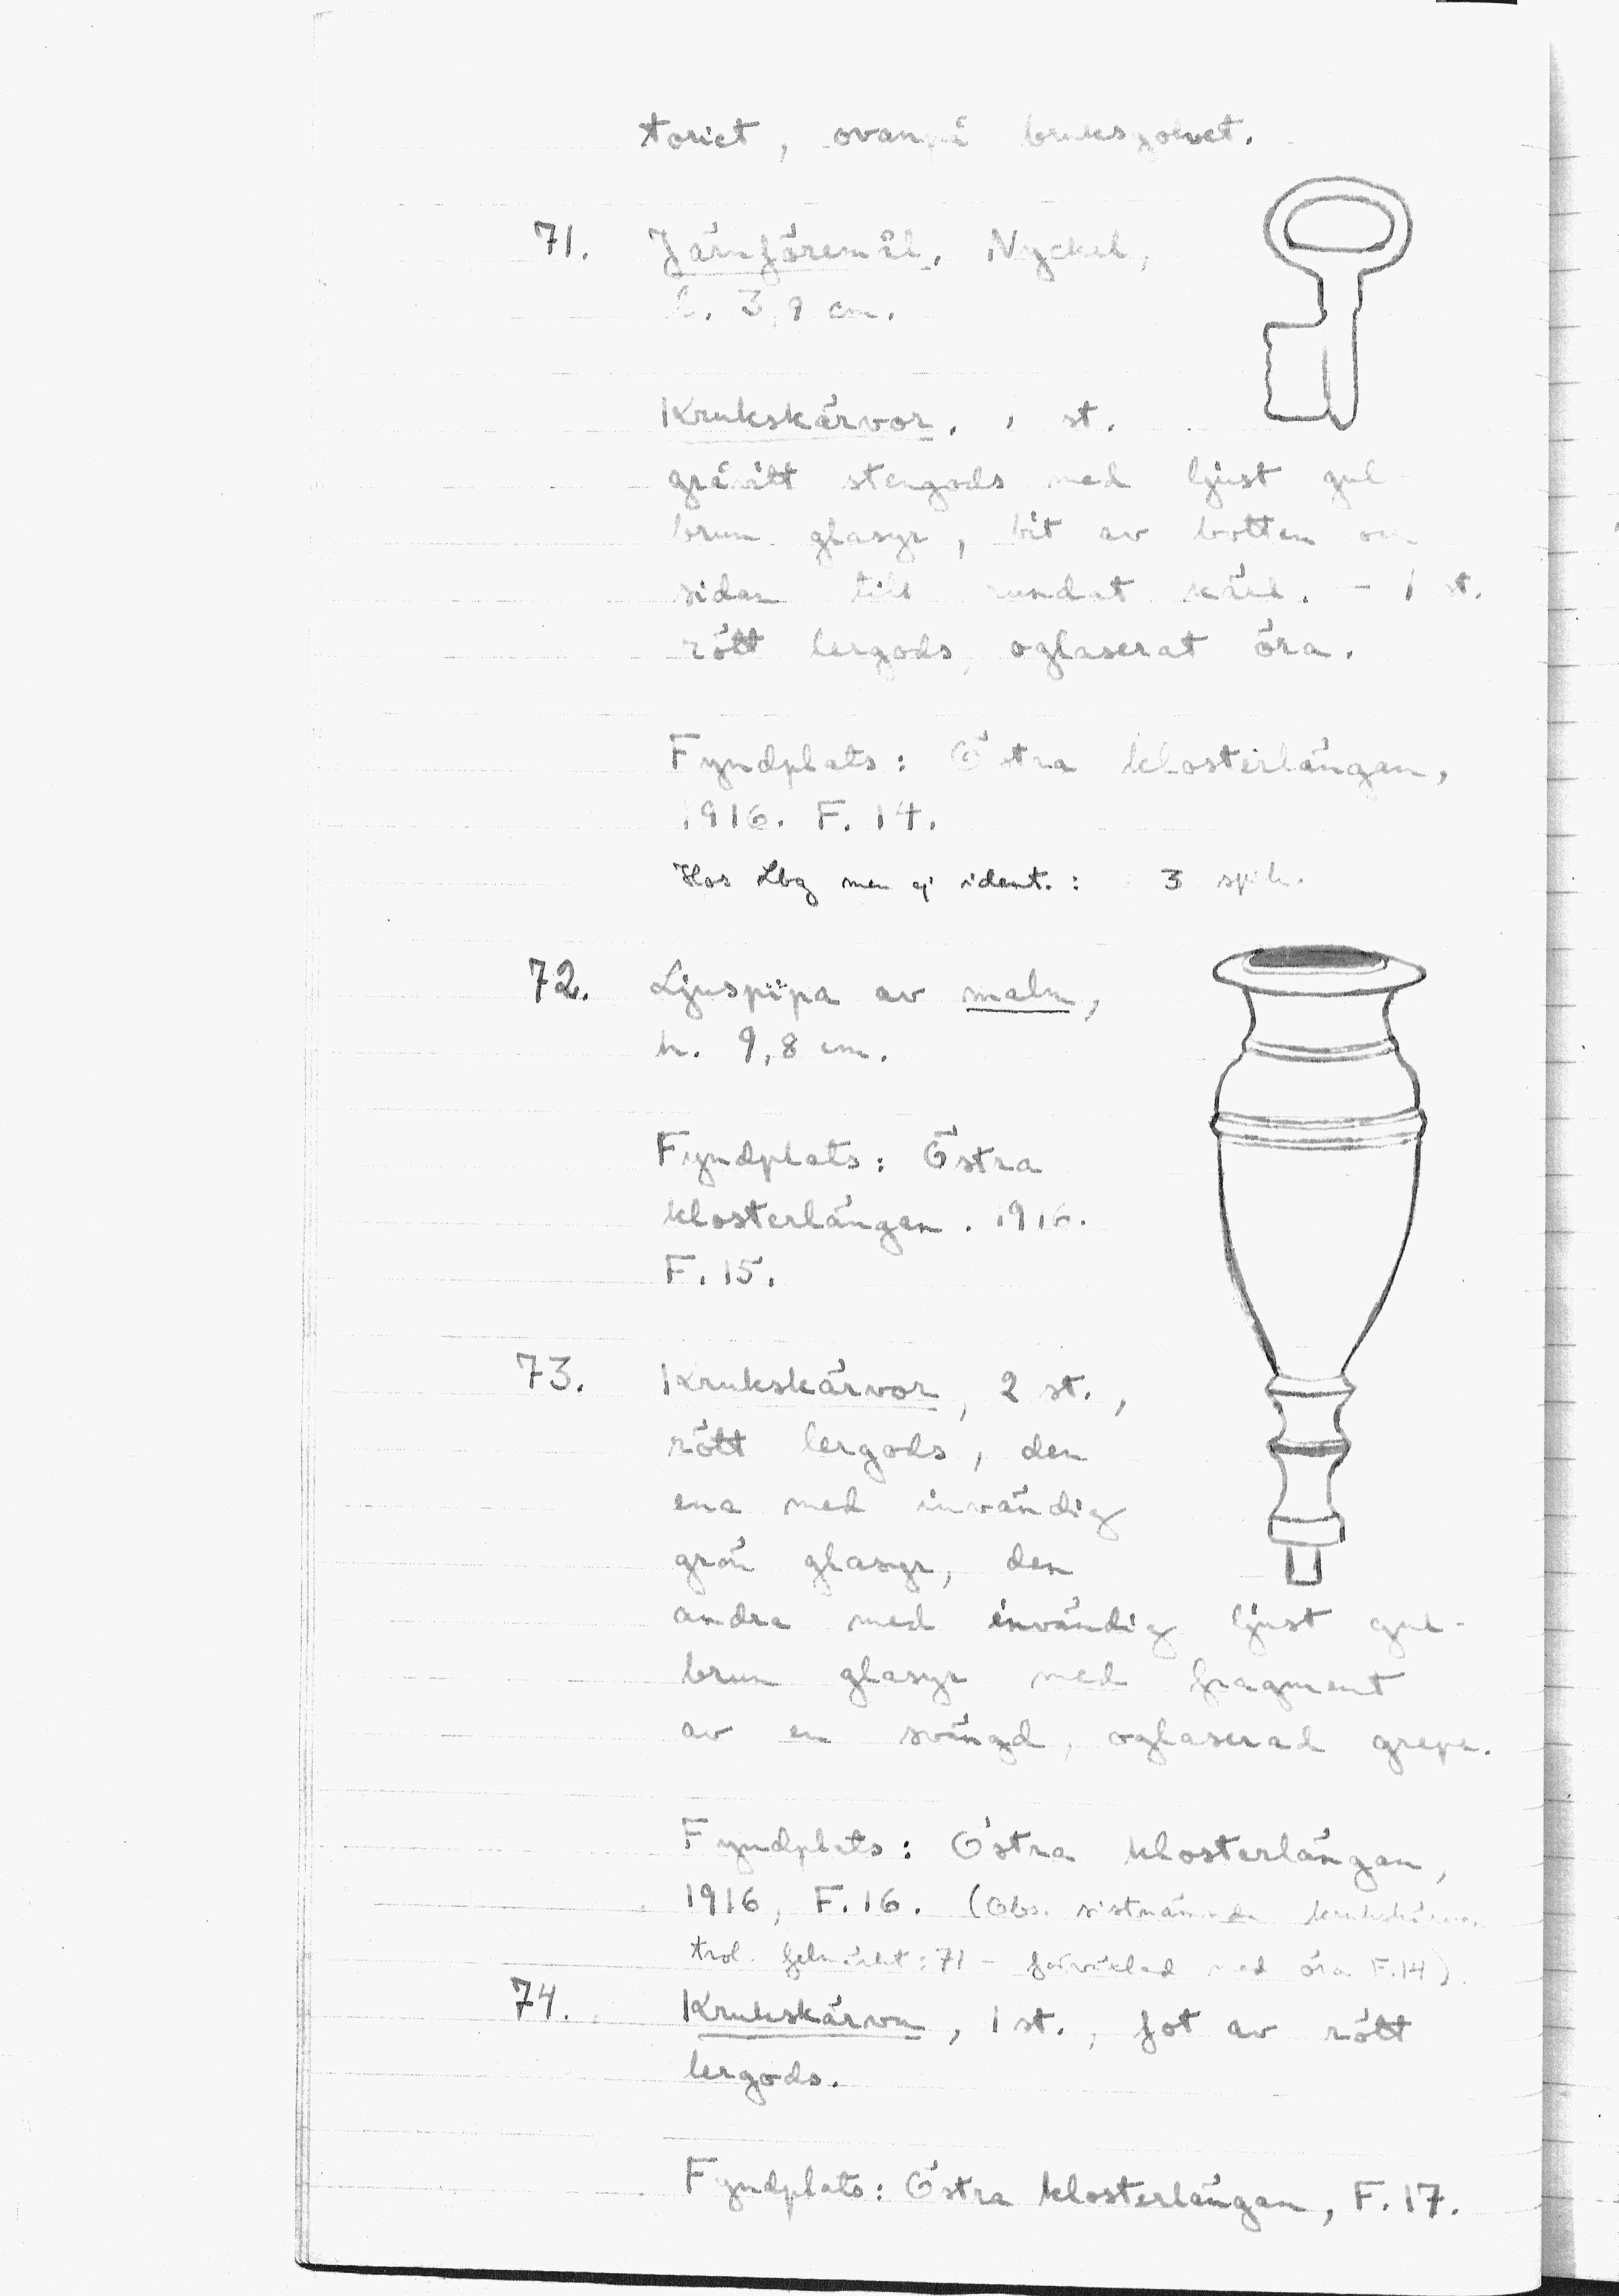 toriet, ovanpå bruksgolvet.
71. Järnföremål. Nyckel,
l. 3,9 cm.
Krukskärvor, 1 st.
gråvitt stengods med ljust gul-
brun glasyr, bit av botten och
sidan till rundat kärl. – 1 st.
rött lergods, oglaserat öra.
Fyndplats: Östra klosterlängan,
1916. F. 14.
Hos Lbg men ej ident.: 3 spik.
72. Ljuspipa av malm,
h. 9,8 cm.
Fyndplats: Östra
klosterlängan. 1916.
F. 15.
73. Krukskärvor, 2 st.,
rött lergods, den
ena med invändig
grön glasyr, den
andra med invändig ljust gul-
brun glasyr med fragment
av en svängd, oglaserad grepe.
Fyndplats: Östra klosterlängan,
1916, F. 16. (Obs. sistnämnda
trol. felmärkt: 71 – förväxlad med öra F. 14).
74. Krukskärva, 1 st., fot av rött
lergods.
Fyndplats: Östra klosterlängan, F. 17.